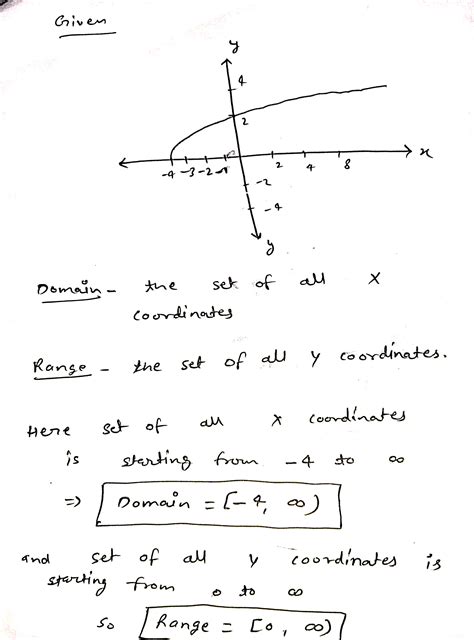 Given
y
4
2
-4 -3 -2 -1 2 4 8 x
-2
-4
y
Domain - the set of all X
coordinates
Range - the set of all y coordinates.
Here set of all x coordinates
is starting from -4 to ∞
⇒ Domain = [-4, ∞)
and set of all y coordinates is
starting from 0 to ∞
so Range = [0, ∞)